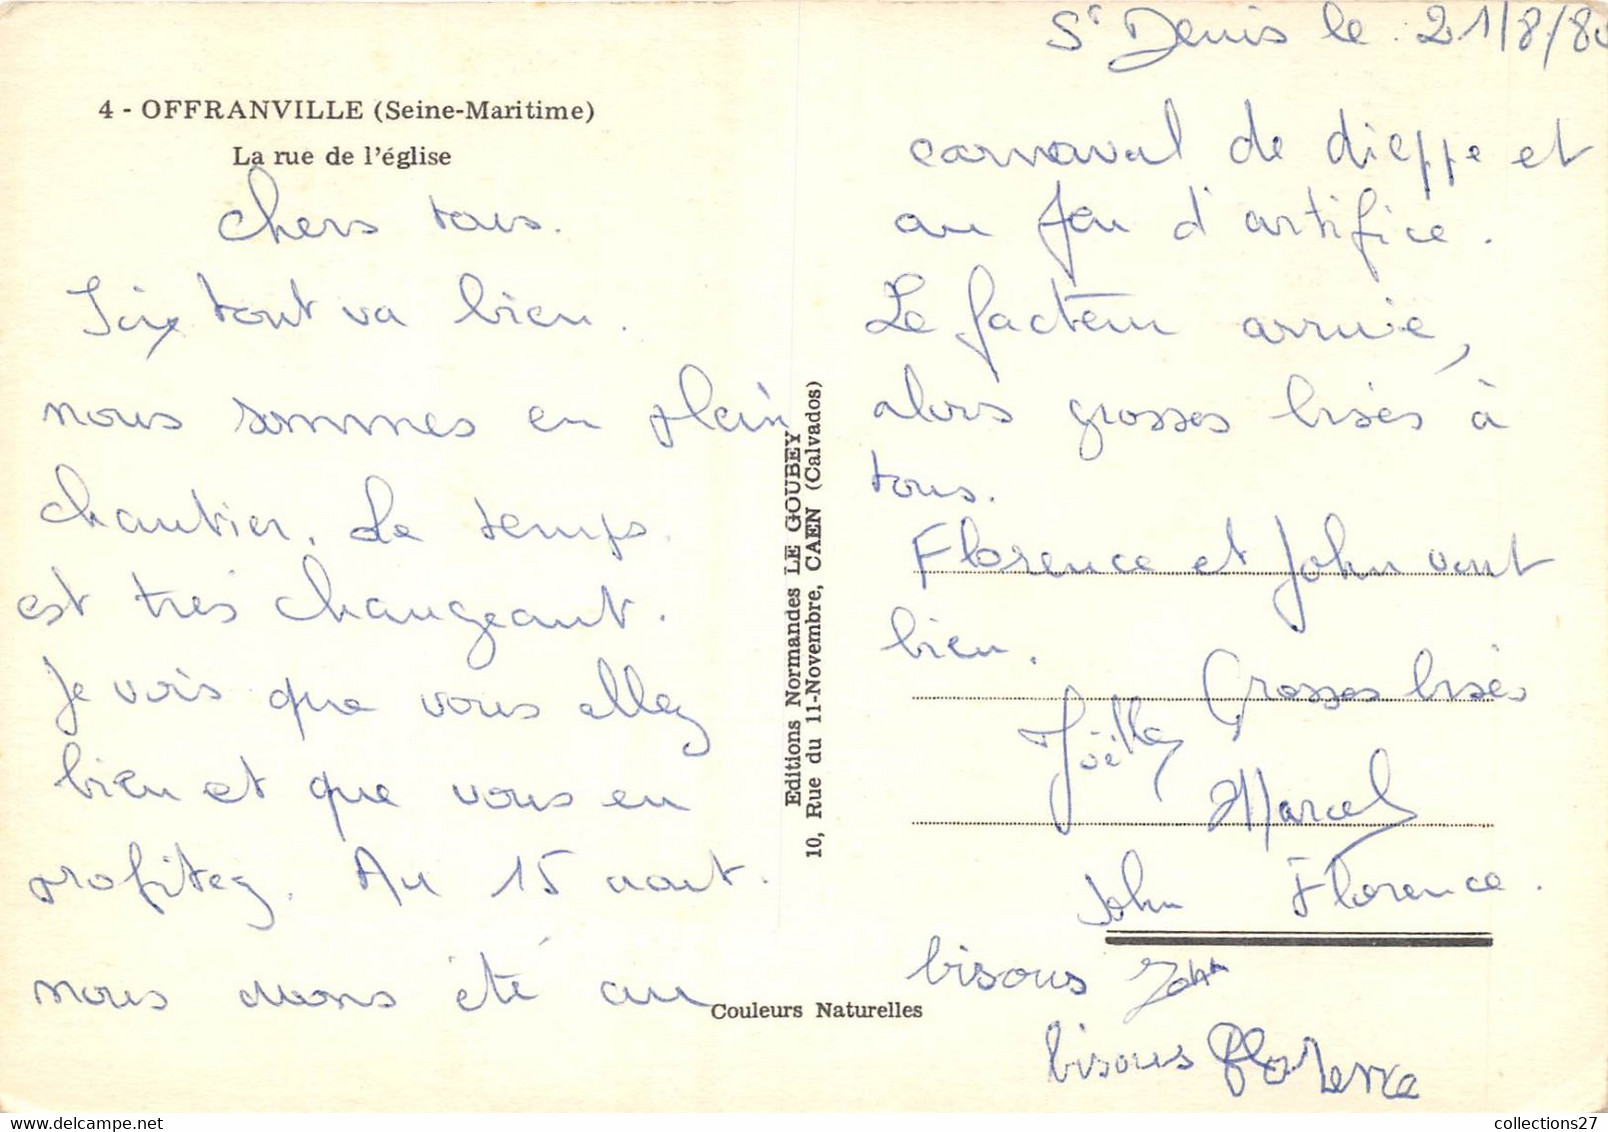 4 - OFFRANVILLE (Seine-Maritime)
La rue de l'église
chers tous.
Ici tout va bien.
nous sommes en plein
chantier. Le temps
est très changeant.
Je vois que vous allez
bien et que vous en
profitez. Au 15 aout.
nous avons été au
Editions Normandes LE GOUBEY
10, Rue du 11-Novembre, CAEN (Calvados)
Couleurs Naturelles
St Denis le 21/8/80
carnaval de dieppe et
au feu d'artifice.
Le facteur arrive,
alors grosses bises à
tous.
Florence et John vont
bien.
Grosses bises
Joëlle
Marcel
John Florence.
bisous John
bisous Florence
collections27